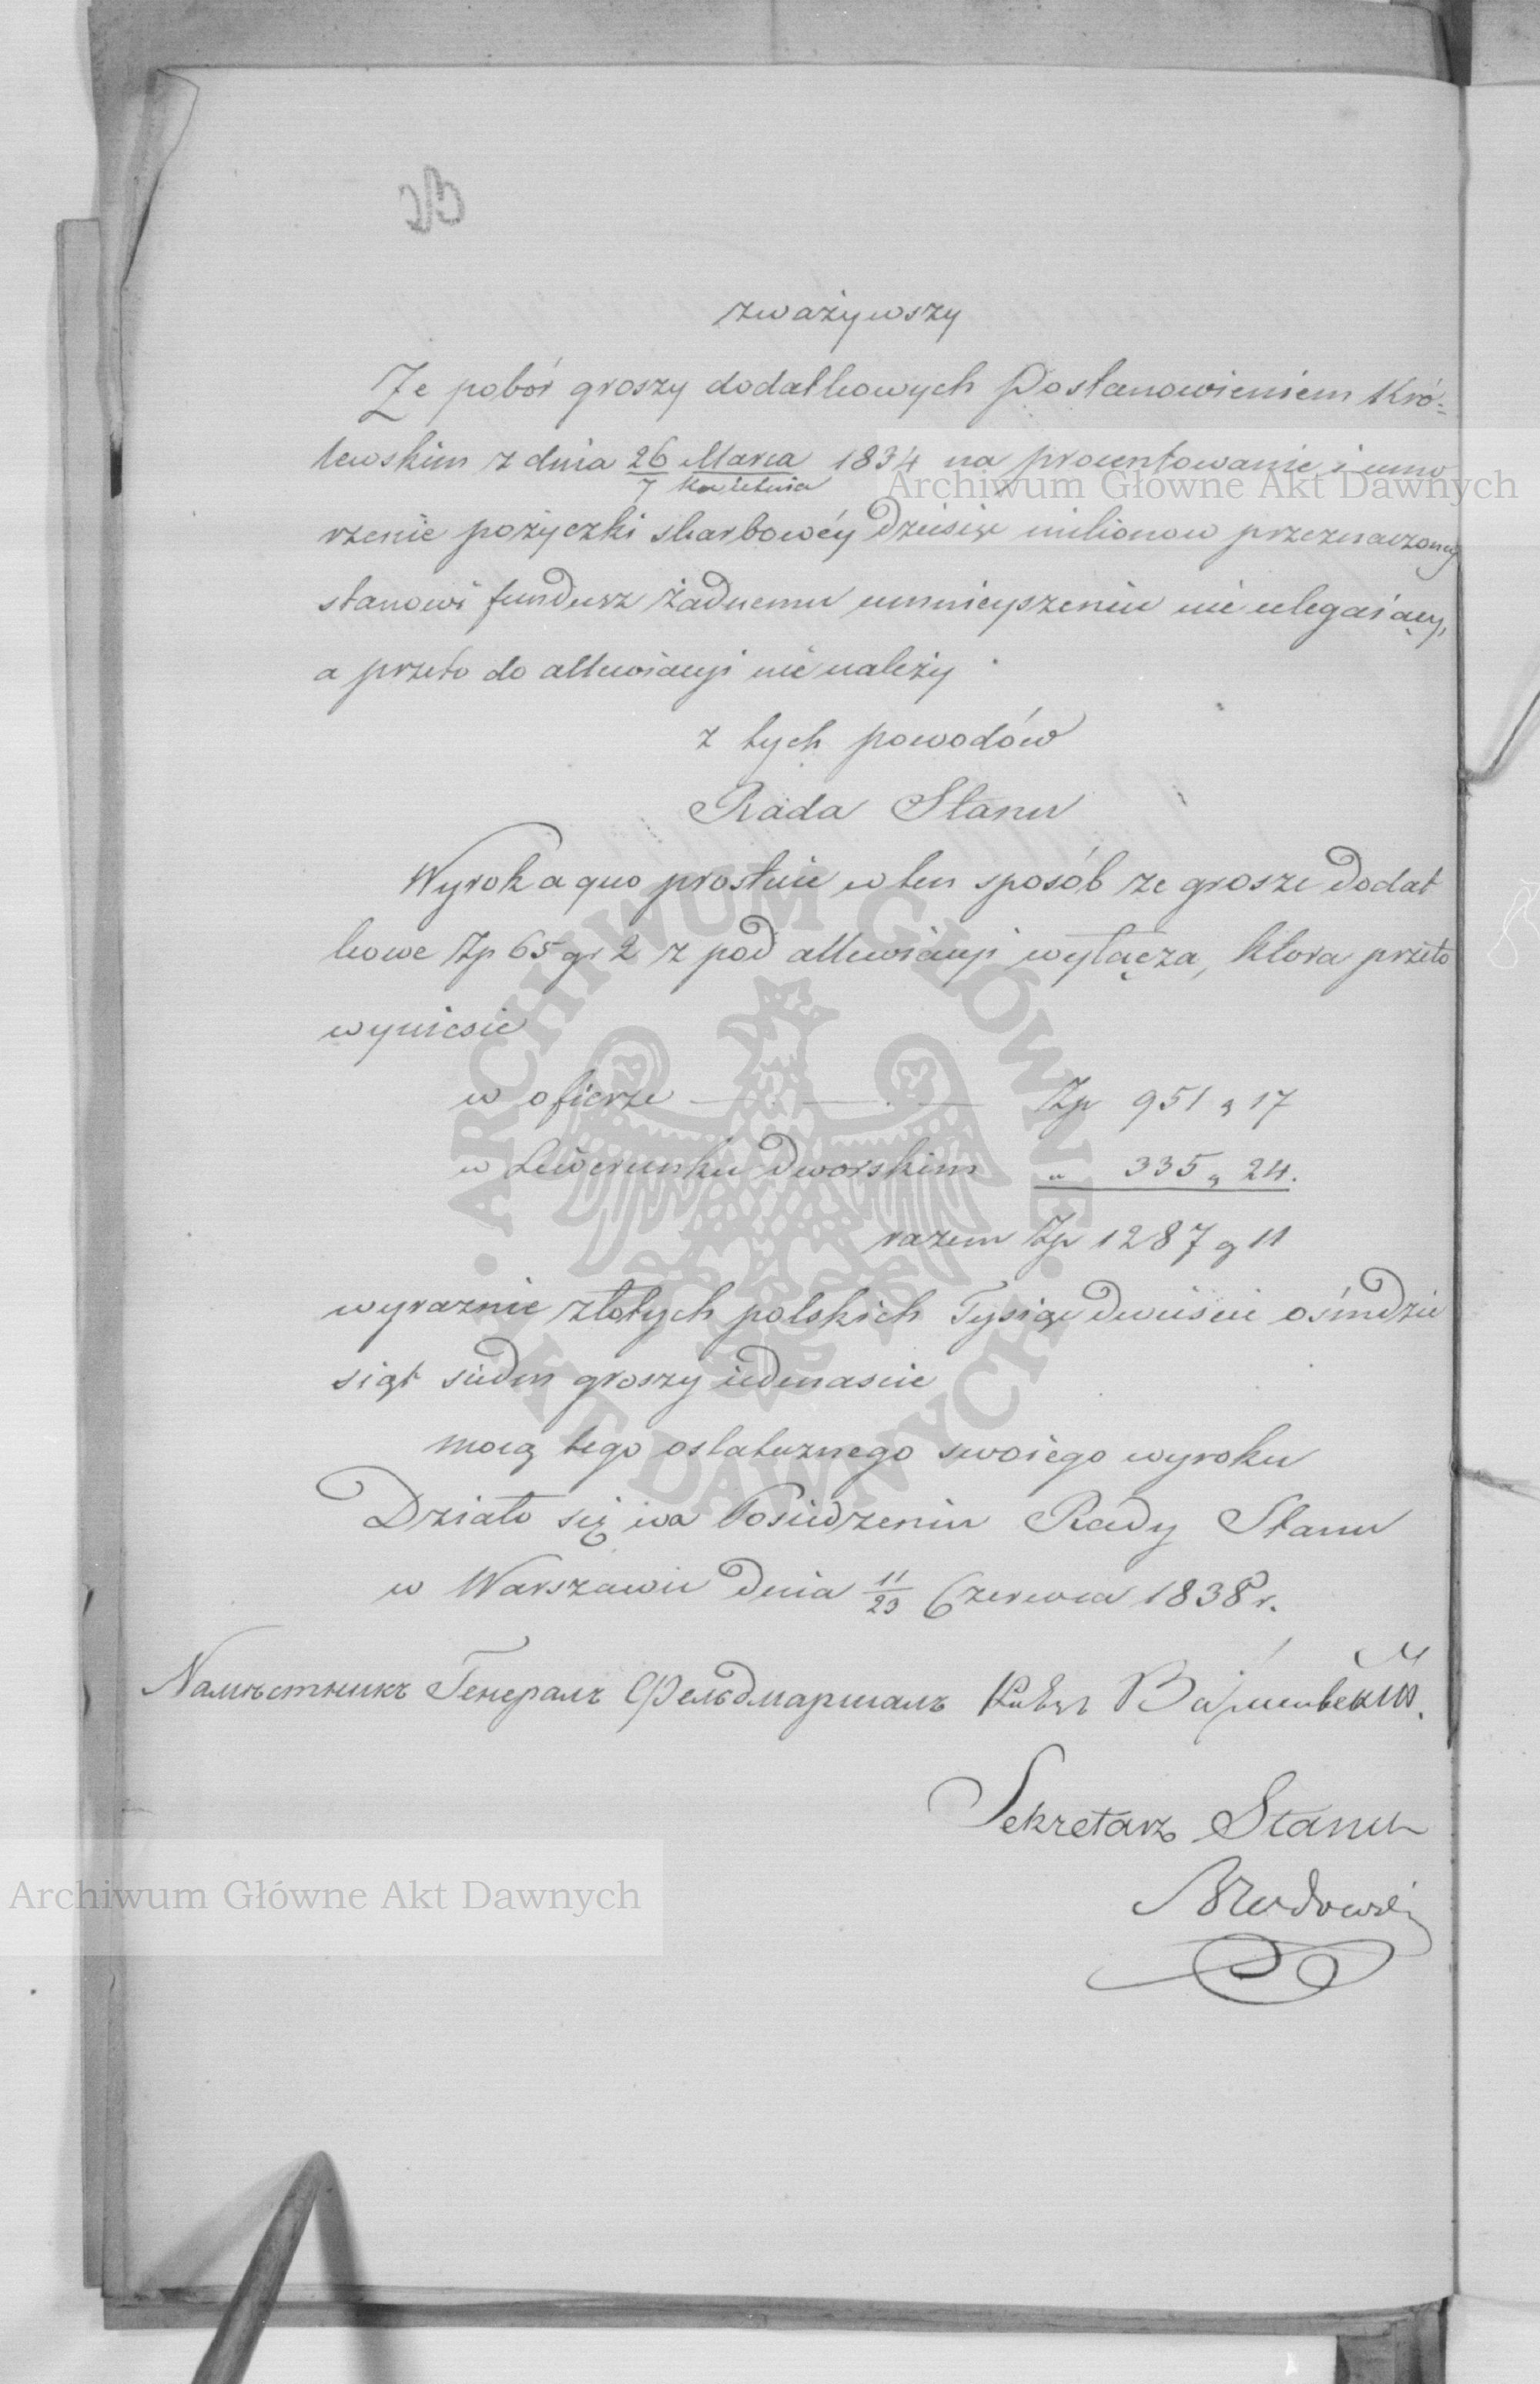 zważywszy
Że pobór groszy dodatkowych Postanowieniem Kró-
lewskim z dnia 26 Marca / 7 Kwietnia 1834 na procentowanie i umo
rzenie pożyczki skarbowéy Dziesięć milionow przeznaczony
stanowi fundusz żadnemu umnieyszeniu nie ulegaiący,
a przeto do allewiacyi nie należy
z tych powodów
Rada Stanu
Wyrok a quo prostuie w ten sposób że grosze dodat
kowe Zp 65 gr 2 z pod allewiacyi wyłącza, ktora przeto
wyniesie
w ofierze Zp 951 g 17
w Liwerunku Dworskim " 335 g 24.
razem Zp 1287 g 11
wyraznie złotych polskich Tysiąc dwieście ośmdzie
siąt siedm groszy iedenascie
mocą tego ostatecznego swoiego wyroku
Działo się na Posiedzeniu Rady Stanu
w Warszawie Dnia 11/23 Czerwca 1838 r.
Намѣстникъ Генералъ Фельдмаршалъ Князь Варшавскій.
Sekretarz Stanu
Archiwum Główne Akt Dawnych
Archiwum Główne Akt Dawnych
ARCHIWUM GŁÓWNE AKT DAWNYCH